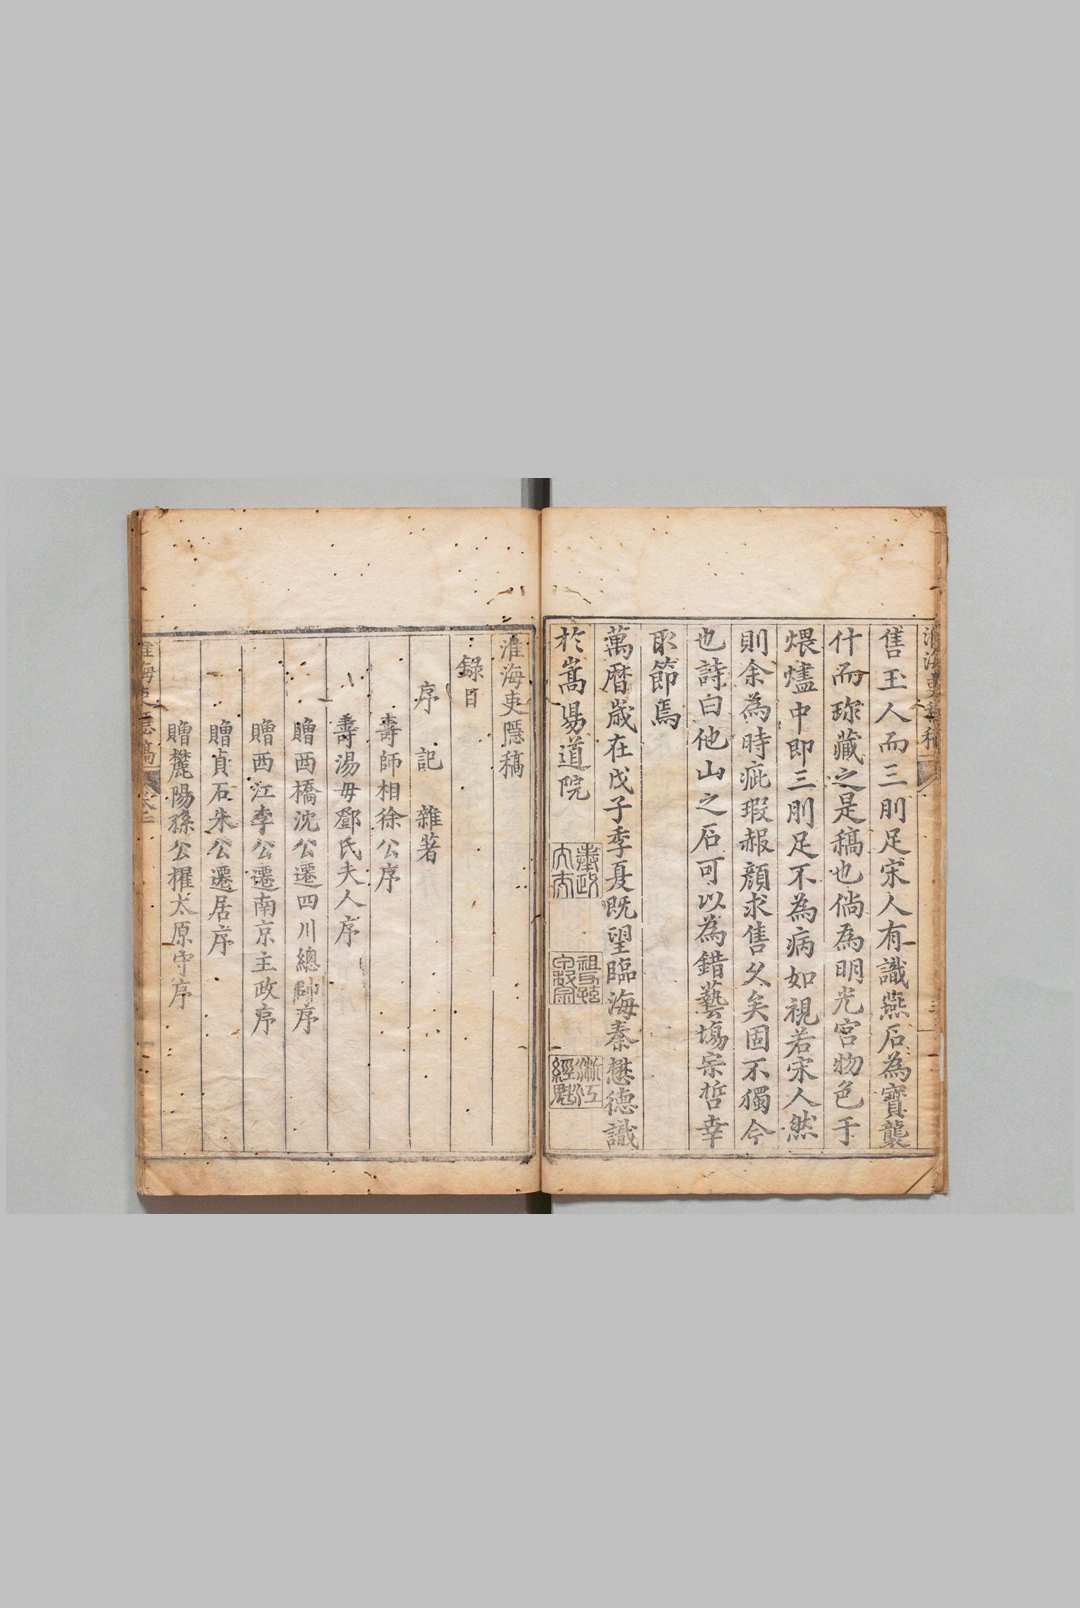 售玉人而三刖足宋人有識燕石為寶襲
什而珎藏之是稿也倘為明光宮物色于
煨燼中即三刖足不為病如視若宋人然
則余為時疵瑕赧顔求售久矣固不獨今
也詩曰他山之石可以為錯藝塲宗哲幸
取節焉
萬曆歲在戊子季夏既望臨海秦懋德識
於嵩昜道院
淮海吏隱稿
錄目
序 記 雜著
壽師相徐公序
壽湯母鄧氏夫人序
贈西橋沈公遷四川總帥序
贈西江李公遷南京主政序
贈貞石朱公遷居序
贈麓陽孫公擢太原守序
淮海吏隱稿